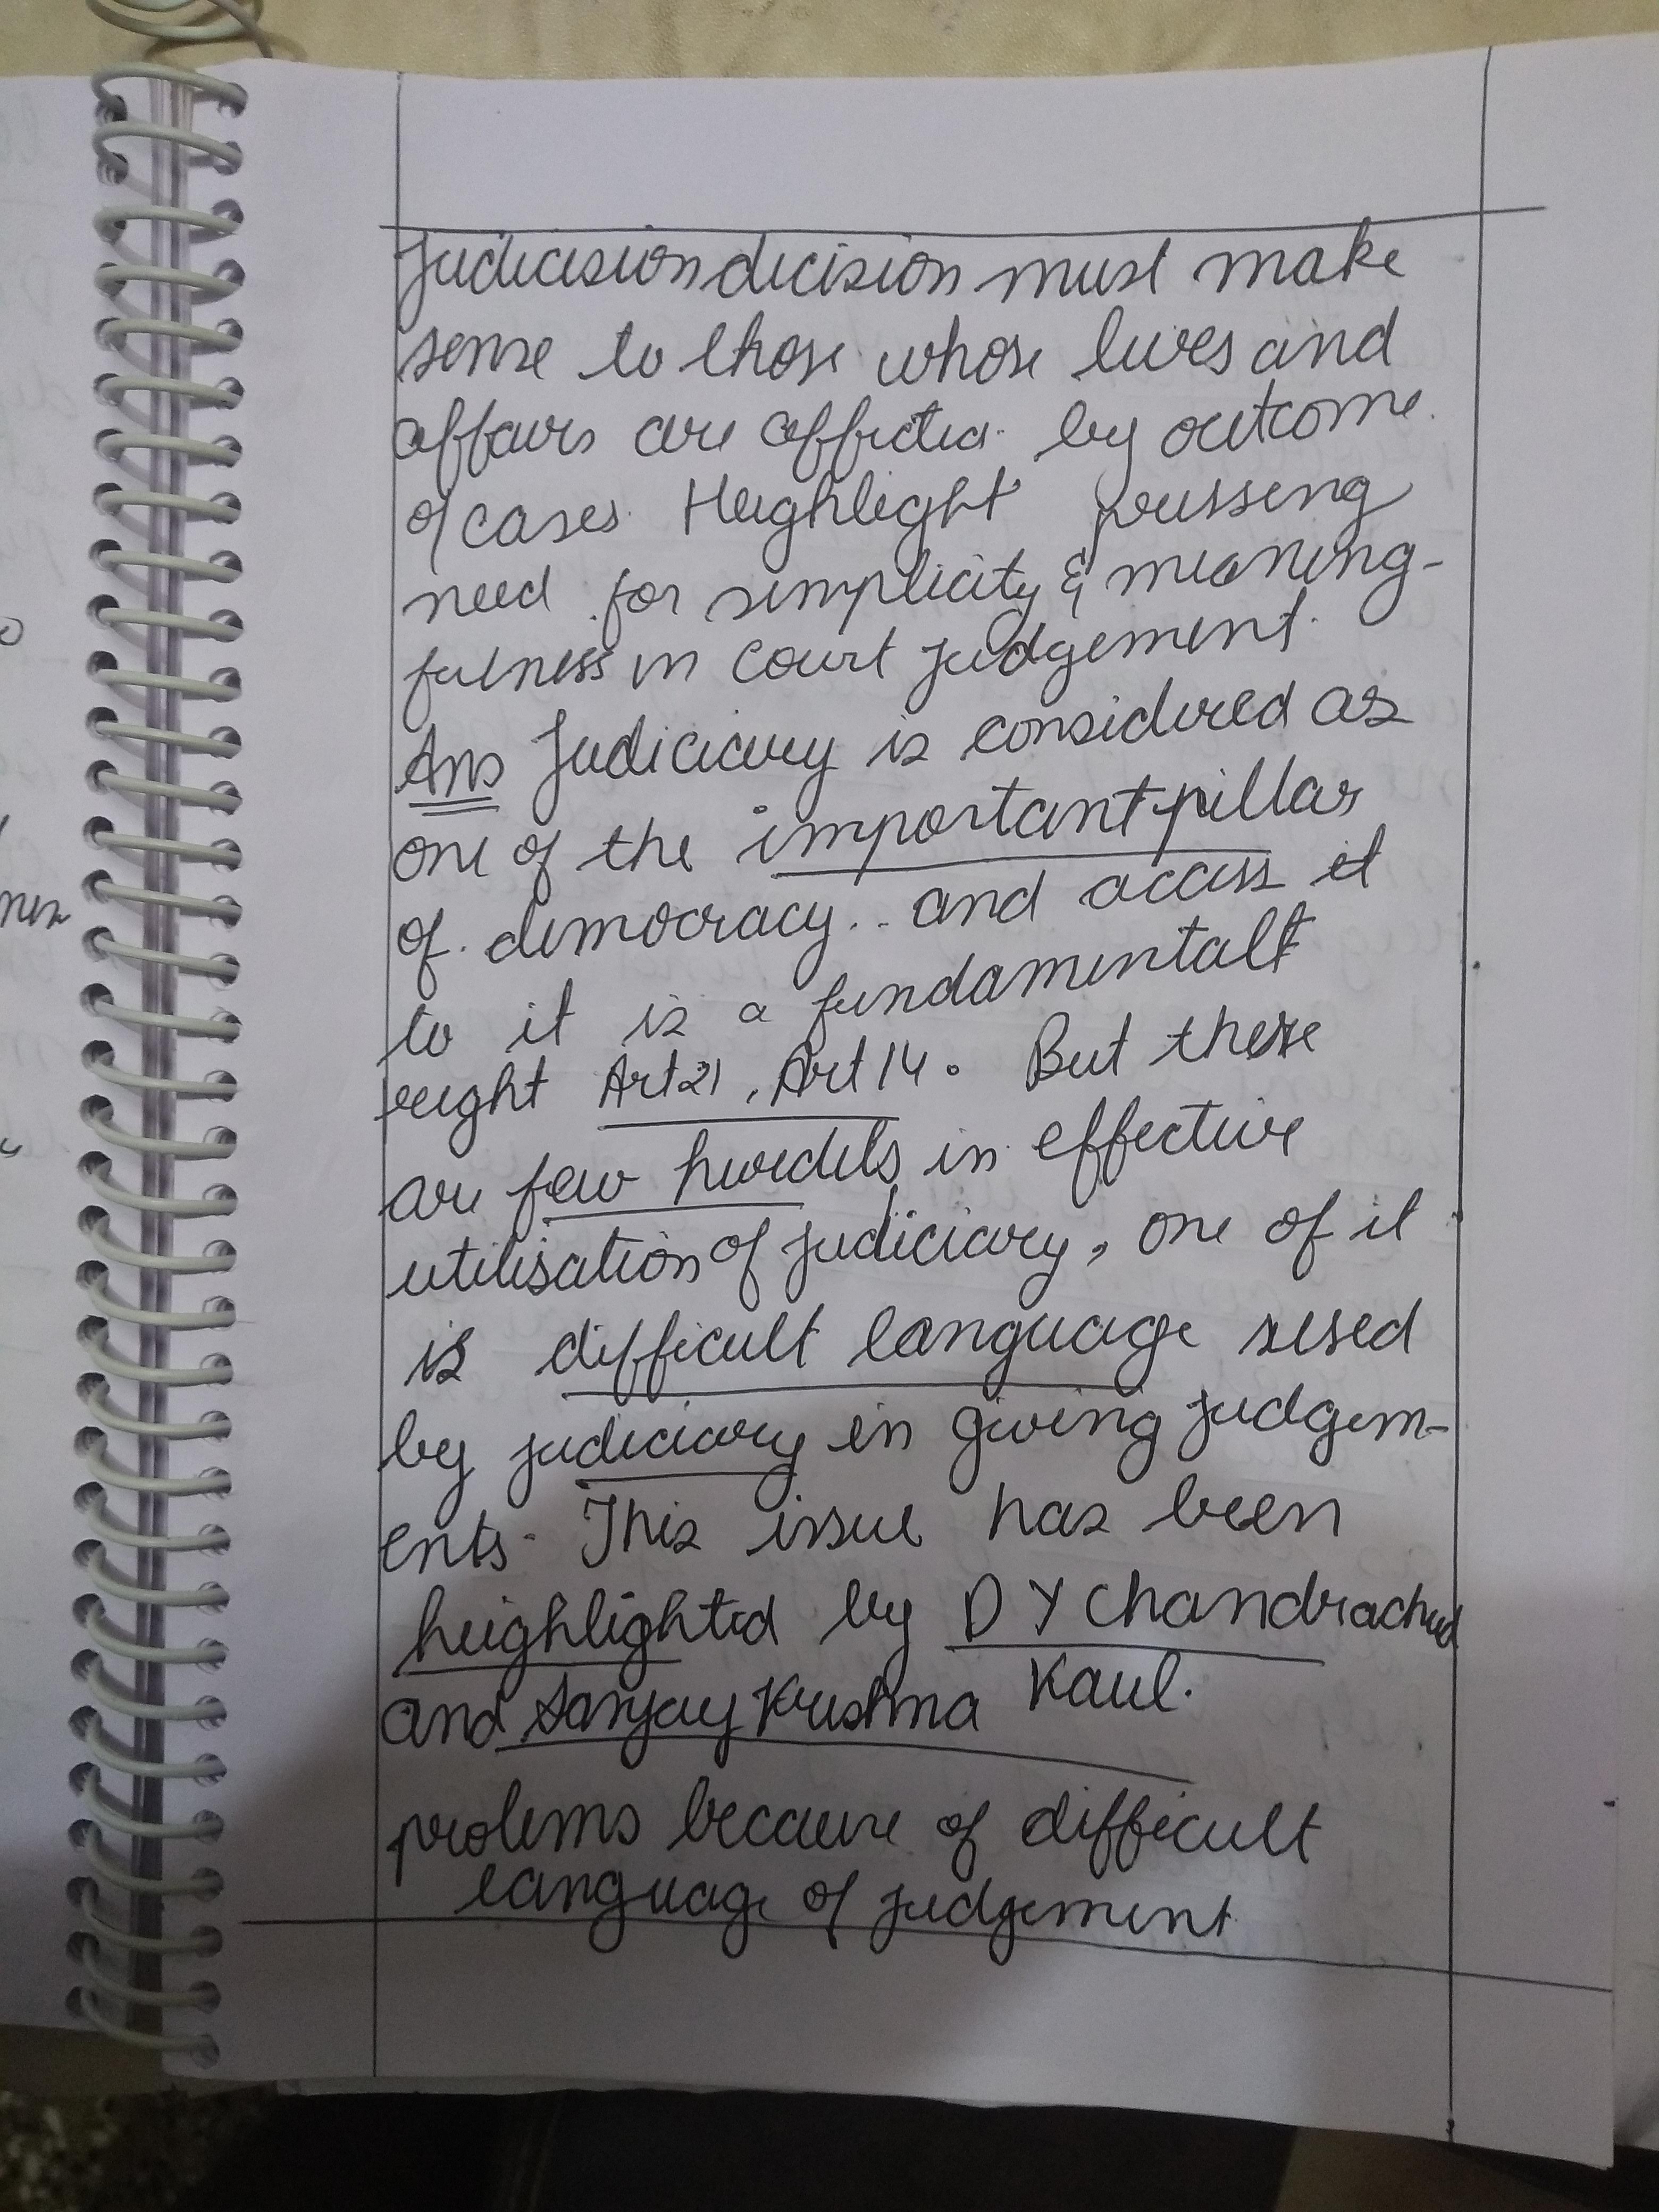 Judicision decision must make
sense to those whose lives and
affairs are affected by outcome.
of cases. Heighlight pressing
need for simplicity & meaning-
fulness in court judgement.
Ans Judiciary is considered as
one of the important pillar
of democracy.. and access it
to it is a fundamental
reight Art 21, Art 14. But there
are few hurdels in effective
utilisation of judiciary, one of it
is difficult language used
by judiciary in giving judgem-
ents. This issue has been
heighlighted by D Y Chandrachud
and Sanjay Krishna Kaul.
prolems because of difficult
language of judgement